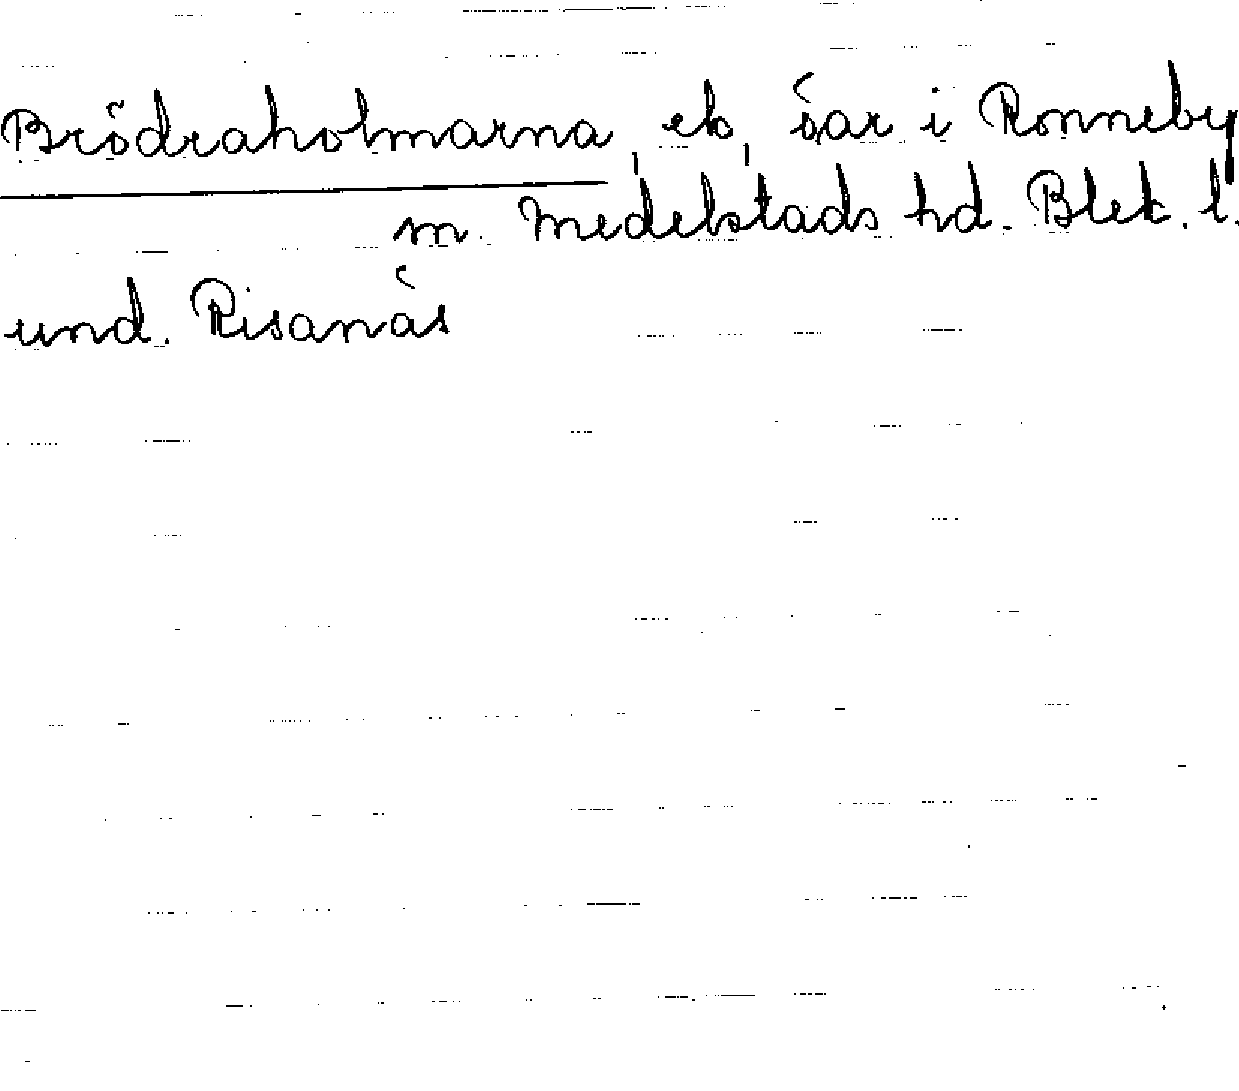 Brödraholmarna, ek, öar i Ronneby
m. Medelstads hd. Blek. l.
und. Risanäs